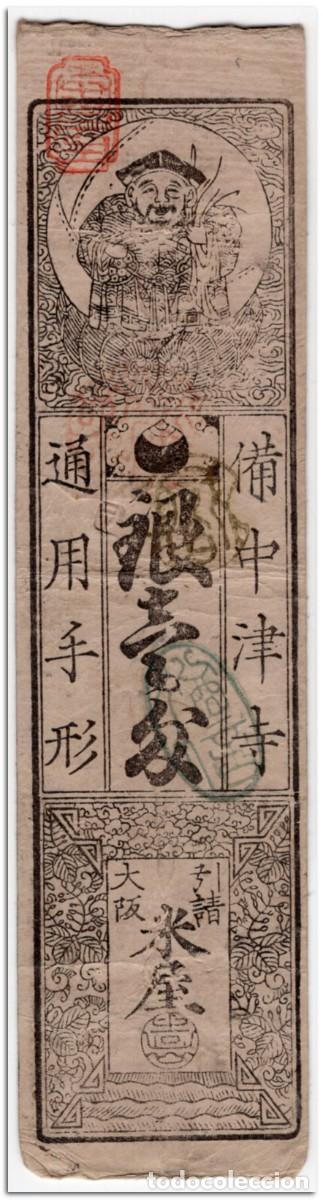 備中津寺
銀壱匁
通用手形
引請
大阪
米屋
todocoleccion